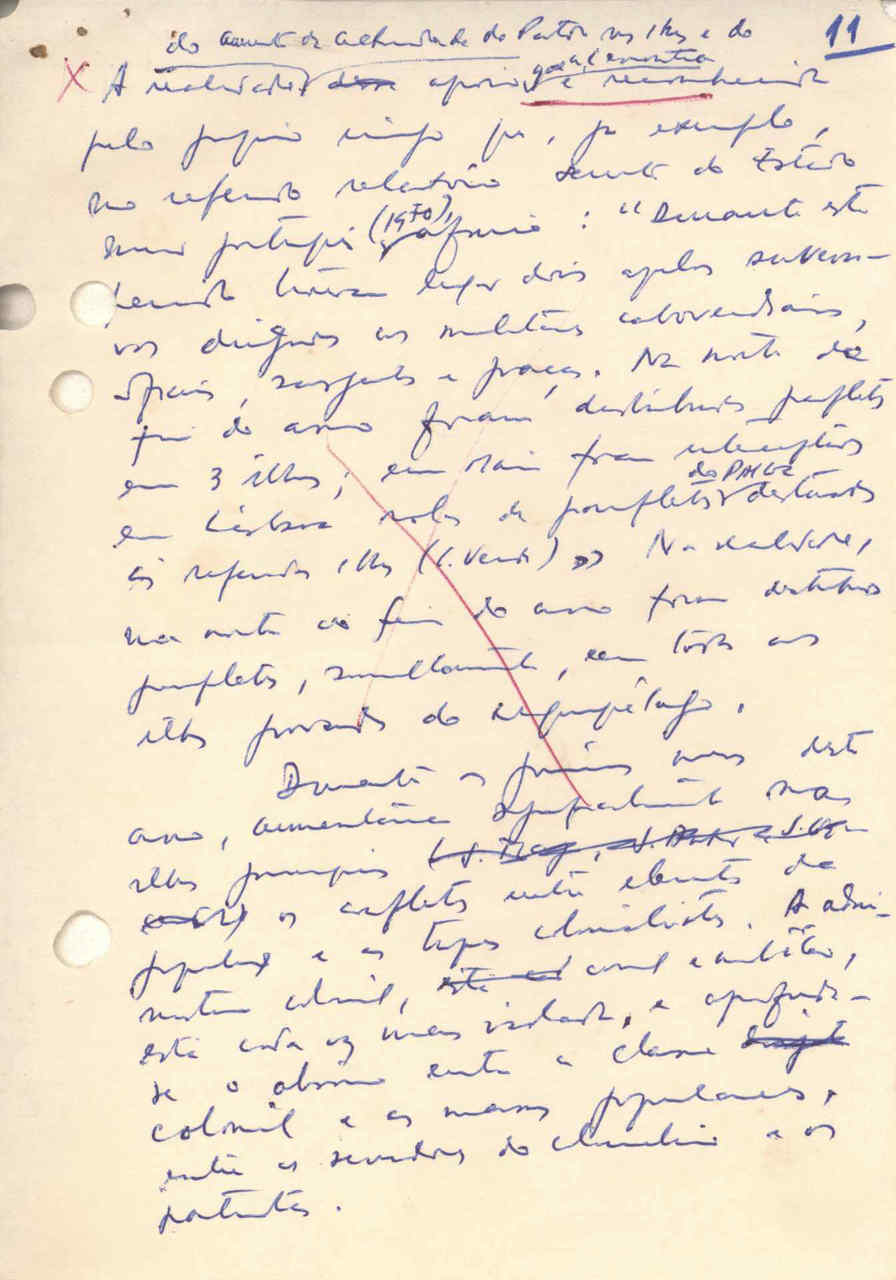 11
do aumento da actividade do Partido nas ilhas e do
A realidade desse apoio geral encontra é reconhecida
pelo próprio inimigo que, por exemplo,
no referido relatório secreto do Estado
Maior português (1970), afirma: "Durante este
período tiveram lugar dois apelos subversi-
vos dirigidos aos militares caboverdianos,
oficiais, sargentos e praças. Na noite de
fim do ano foram distribuidos panfletos
em 3 ilhas; em Maio foram interceptados
do PAIGC
em Lisboa de panfletos destinados
às referidas ilhas (C. Verde)" Na realidade,
na noite do fim do ano foram distribuidos
panfletos, simultaneamente, em todas as
ilhas povoadas do arquipélago.
Durante os primeiros meses deste
ano, aumentaram nas
ilhas principais
os conflitos entre elementos da
população e as tropas colonialistas. A admi-
nistração colonial, civil e militar,
está cada vez mais isolada, e aprofunda-
se o abismo entre a classe
colonial e as massas populares,
entre os servidores do colonialismo e os
patriotas.